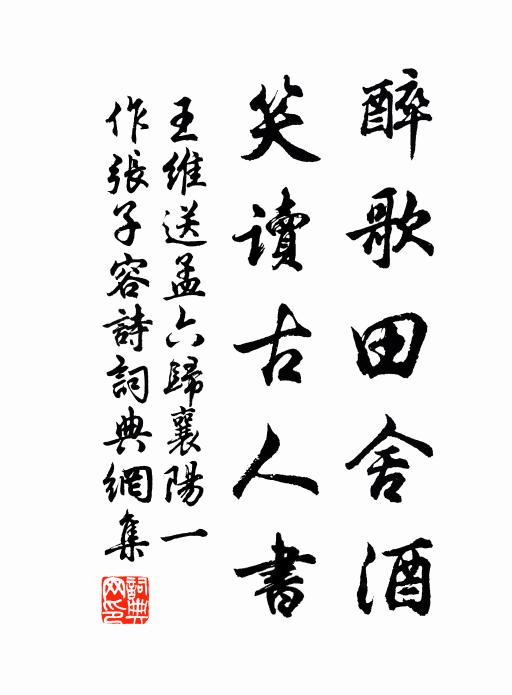 醉歌田舍酒
笑讀古人書
王維送孟六歸襄陽一
作張子容詩詞典網集
詞典
网印